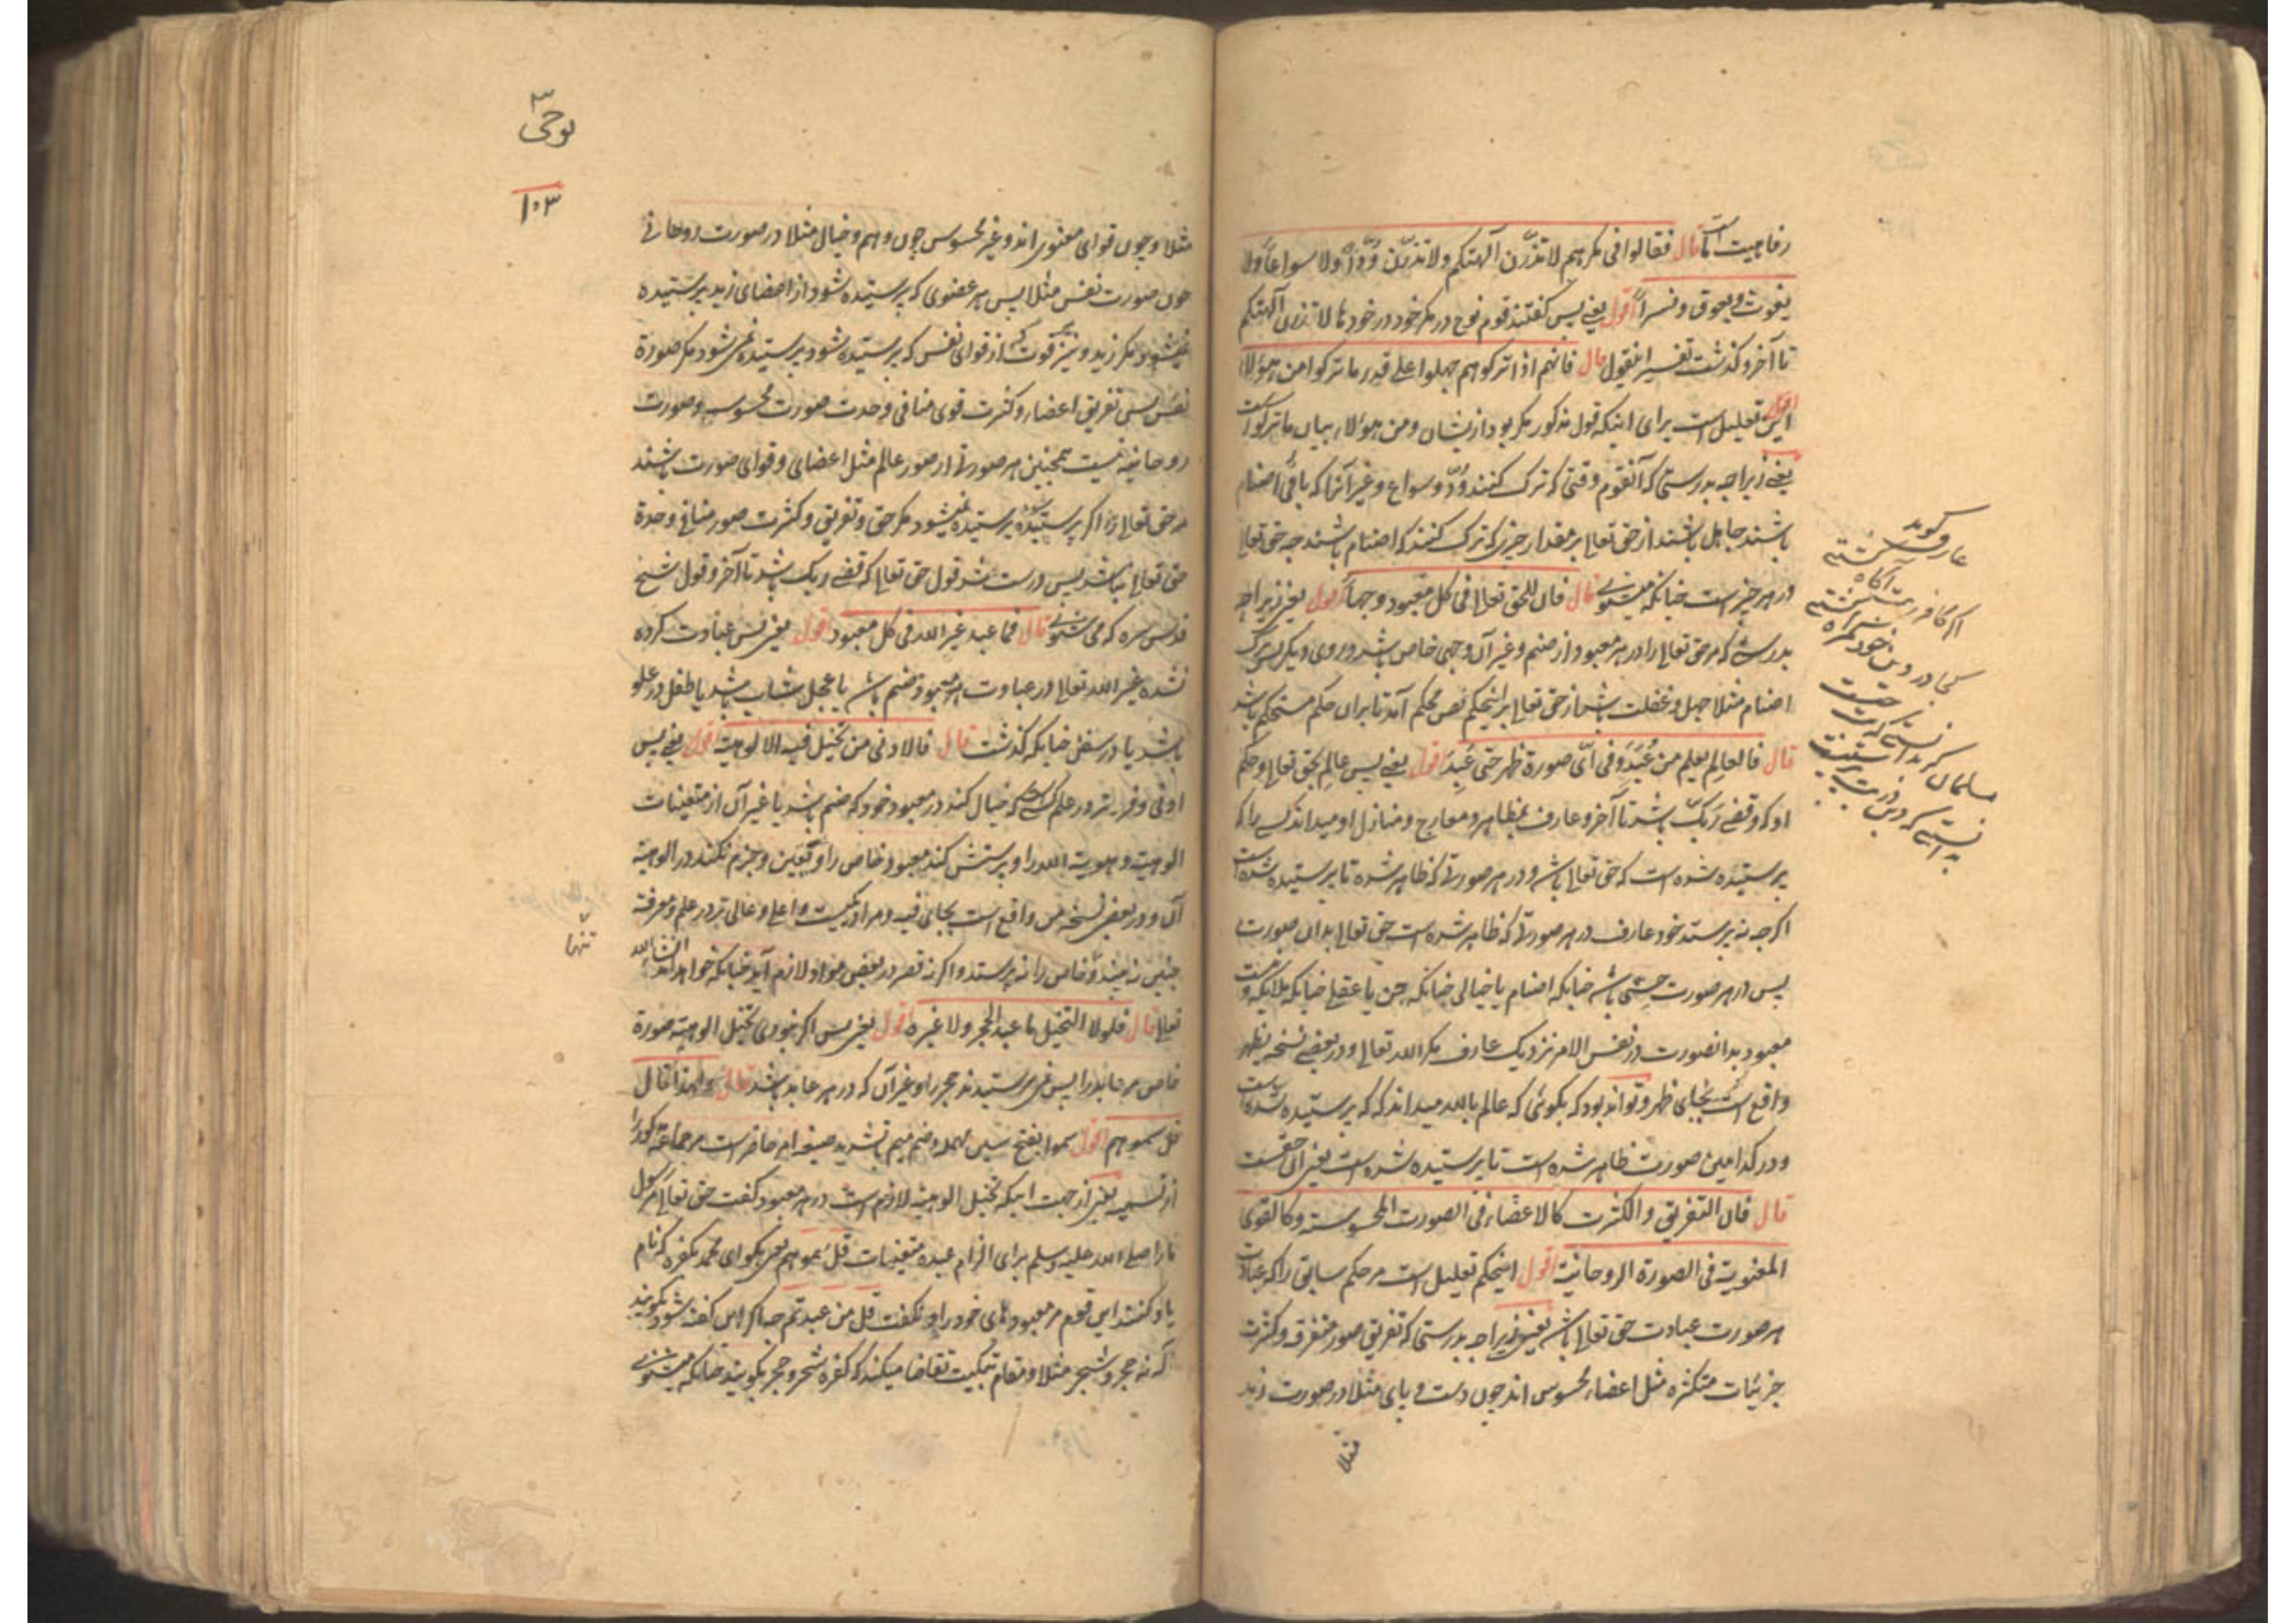 رفاهیت است قال فقالوا فی مکرهم لا تذرّن آلهتکم ولا تذرّن ودّاً ولا سواعاً ولا
یغوث و یعوق و نسراً اقول یعنی پس گفتند قوم نوح در مکر خود در خودها لا تذرن آلهتکم
تا آخر و گذشت تفسیر اینقول قال فانهم اذا ترکوهم جهلوا علی قدر ما ترکوا من هؤلاء
اقول این تعلیل است برای اینکه قول مذکور مکر بود ازیشان و من هؤلاء بیان ما ترکوا است
یعنی زیرا چه بدرستی که آنقوم وقتی که ترک کنند ودّ و سواع و غیر آنرا که باقی اصنام
باشند جاهل باشند از حق تعالی بر مقدار چیزی که ترک کنند که اصنام باشند چه حق تعالی
در هر چیز است چنانکه میشنوی قال فان للحق تعالی فی کل معبود وجهاً اقول یعنی زیرا چه
بدرستی که مر حق تعالی را در هر معبود از صنم و غیر آن وجهی خاص باشد و روی دیگر پس ترک
اصنام مثلا جهل و غفلت باشد از حق تعالی برینحکم نص محکم آمد تا بران حکم مستحکم باشد
قال فالعالم یعلم من عُبِدَ و فی ایّ صورة ظهر حتی عُبِدَ اقول یعنی پس عالم بحق تعالی و حکم
او که و قضی ربک باشد تا آخر و عارف بمظاهر و معارج و منازل او میداند کسے را که
پرستیده شده است که حق تعالی باشد و در هر صورتی که ظاهر شده تا پرستیده شده است
اگر چه نه پرستد خود عارف در هر صورتی که ظاهر شده است حق تعالی بدان صورت
پس در هر صورت حسّی باشد چنانکه اصنام یا خیالی چنانکه جن یا عقلی چنانکه ملائکه
معبود بدانصورت در نفس الامر نزدیک عارف مگر الله تعالی و در بعضے نسخه یظهر
واقع است بجای ظهر و تواند بود که بگوئی که عالم بالله میداند که که پرستیده شده است
و در کدامین صورت ظاهر شده است تا پرستیده شده است یعنی آن حقست
قال فان التفریق و الکثرت کالاعضاء فی الصورت المحسوسته و کالقوی
المعنویت فی الصورة الروحانیته اقول اینحکم تعلیل است مر حکم سابق را که عبادت
هر صورت عبادت حق تعالی باشد یعنی زیرا چه بدرستی که تفریق صور متفرقه و کثرت
جزئیات متکثره مثل اعضاء محسوس اند چون دست و پای مثلا در صورت زید
مثلا
عارف گوید
اگر کافر ز بت آگاه گشتی
کجا در دین خود گمراه گشتی
مسلمان گر بدانستی که بت چیست
بدانستی که دین در بت پرستیست
نوحی
۱۰۳
مثلا و چون قوای معنوی اند و غیر محسوس چون وهم و خیال مثلا در صورت روحانی
چون صورت نفس مثلا پس هر عضوی که پرستیده شود از اعضای زید پرستیده
نمیشود مگر زید و نیز قوت که از قوای نفس که پرستیده شود پرستیده نمی شود مگر صورة
نفس پس تفریق اعضاء و کثرت قوی منافی وحدت صورت محسوسه و صورت
روحانیه نیست همچنین هر صورتی از صور عالم مثل اعضای و قوای صورت باشند
مر حق تعالی را اگر پرستیده شود پرستیده نمیشود مگر حق و تفریق و کثرت صور منافی وحدة
حق تعالی نباشد پس درست شد قول حق تعالی که و قضی ربک باشد تا آخر و قول شیخ
قدس سره که می شنوی قال فما عبد غیر الله فی کل معبود اقول یعنی پس عبادت کرده
نشده غیر الله تعالی در عبادت هر معبود صنم باشد یا عجل شاب باشد یا طفل در علو
باشد یا در سفل چنانکه گذشت قال فالادنی من تخیل فیه الالوهیة اقول یعنی پس
ادنی و فروتر در علم کسی است که خیال کند در معبود خود که صنم باشد یا غیر آن از متعینات
الوهیت و هویت الله را و پرستش کند معبود خاص را و تعین و جزم نکند در الوهیته
آن و در بعض نسخه من واقع است بجای فیه و مراد یکیست و اعلی و عالی تر در علم و معرفه
چنین نه بیند و خاص را نه پرستد و اگر نه قصر در بعض مواد لازم آید چنانکه خواهد آمد انشاء الله
تنها
تعالی قال فلولا التخیل ما عبد الحجر ولا غیره اقول یعنی پس اگر نبودی تخیل الوهیته صورة
خاص مر عابد را پس نمی پرستیدند حجر را و غیر آن که در هر عابد باشد قال و لهذا قال
قل سموهم اقول سموا بفتح سین مهمله و ضم میم با تشدید صیغه امر حاضر است مر جماعة ذکور را
از تسمیه یعنی از جهت اینکه تخیل الوهیته لازم است در هر معبود گفت حق تعالی مر رسول
ما را صلی الله علیه وسلم برای الزام عبده متعینات قل سموهم یعنی بگو ای محمد بکفره که نام
یاد کنند این قوم مر معبودهای خود را و نگفت قل من عبدتم چه اگر این گفته شود بگویند
که نه حجر و شجر مثلا و مقام تبکیت تقاضا میکند که کفره شجر و حجر بگویند چنانکه میشنوی